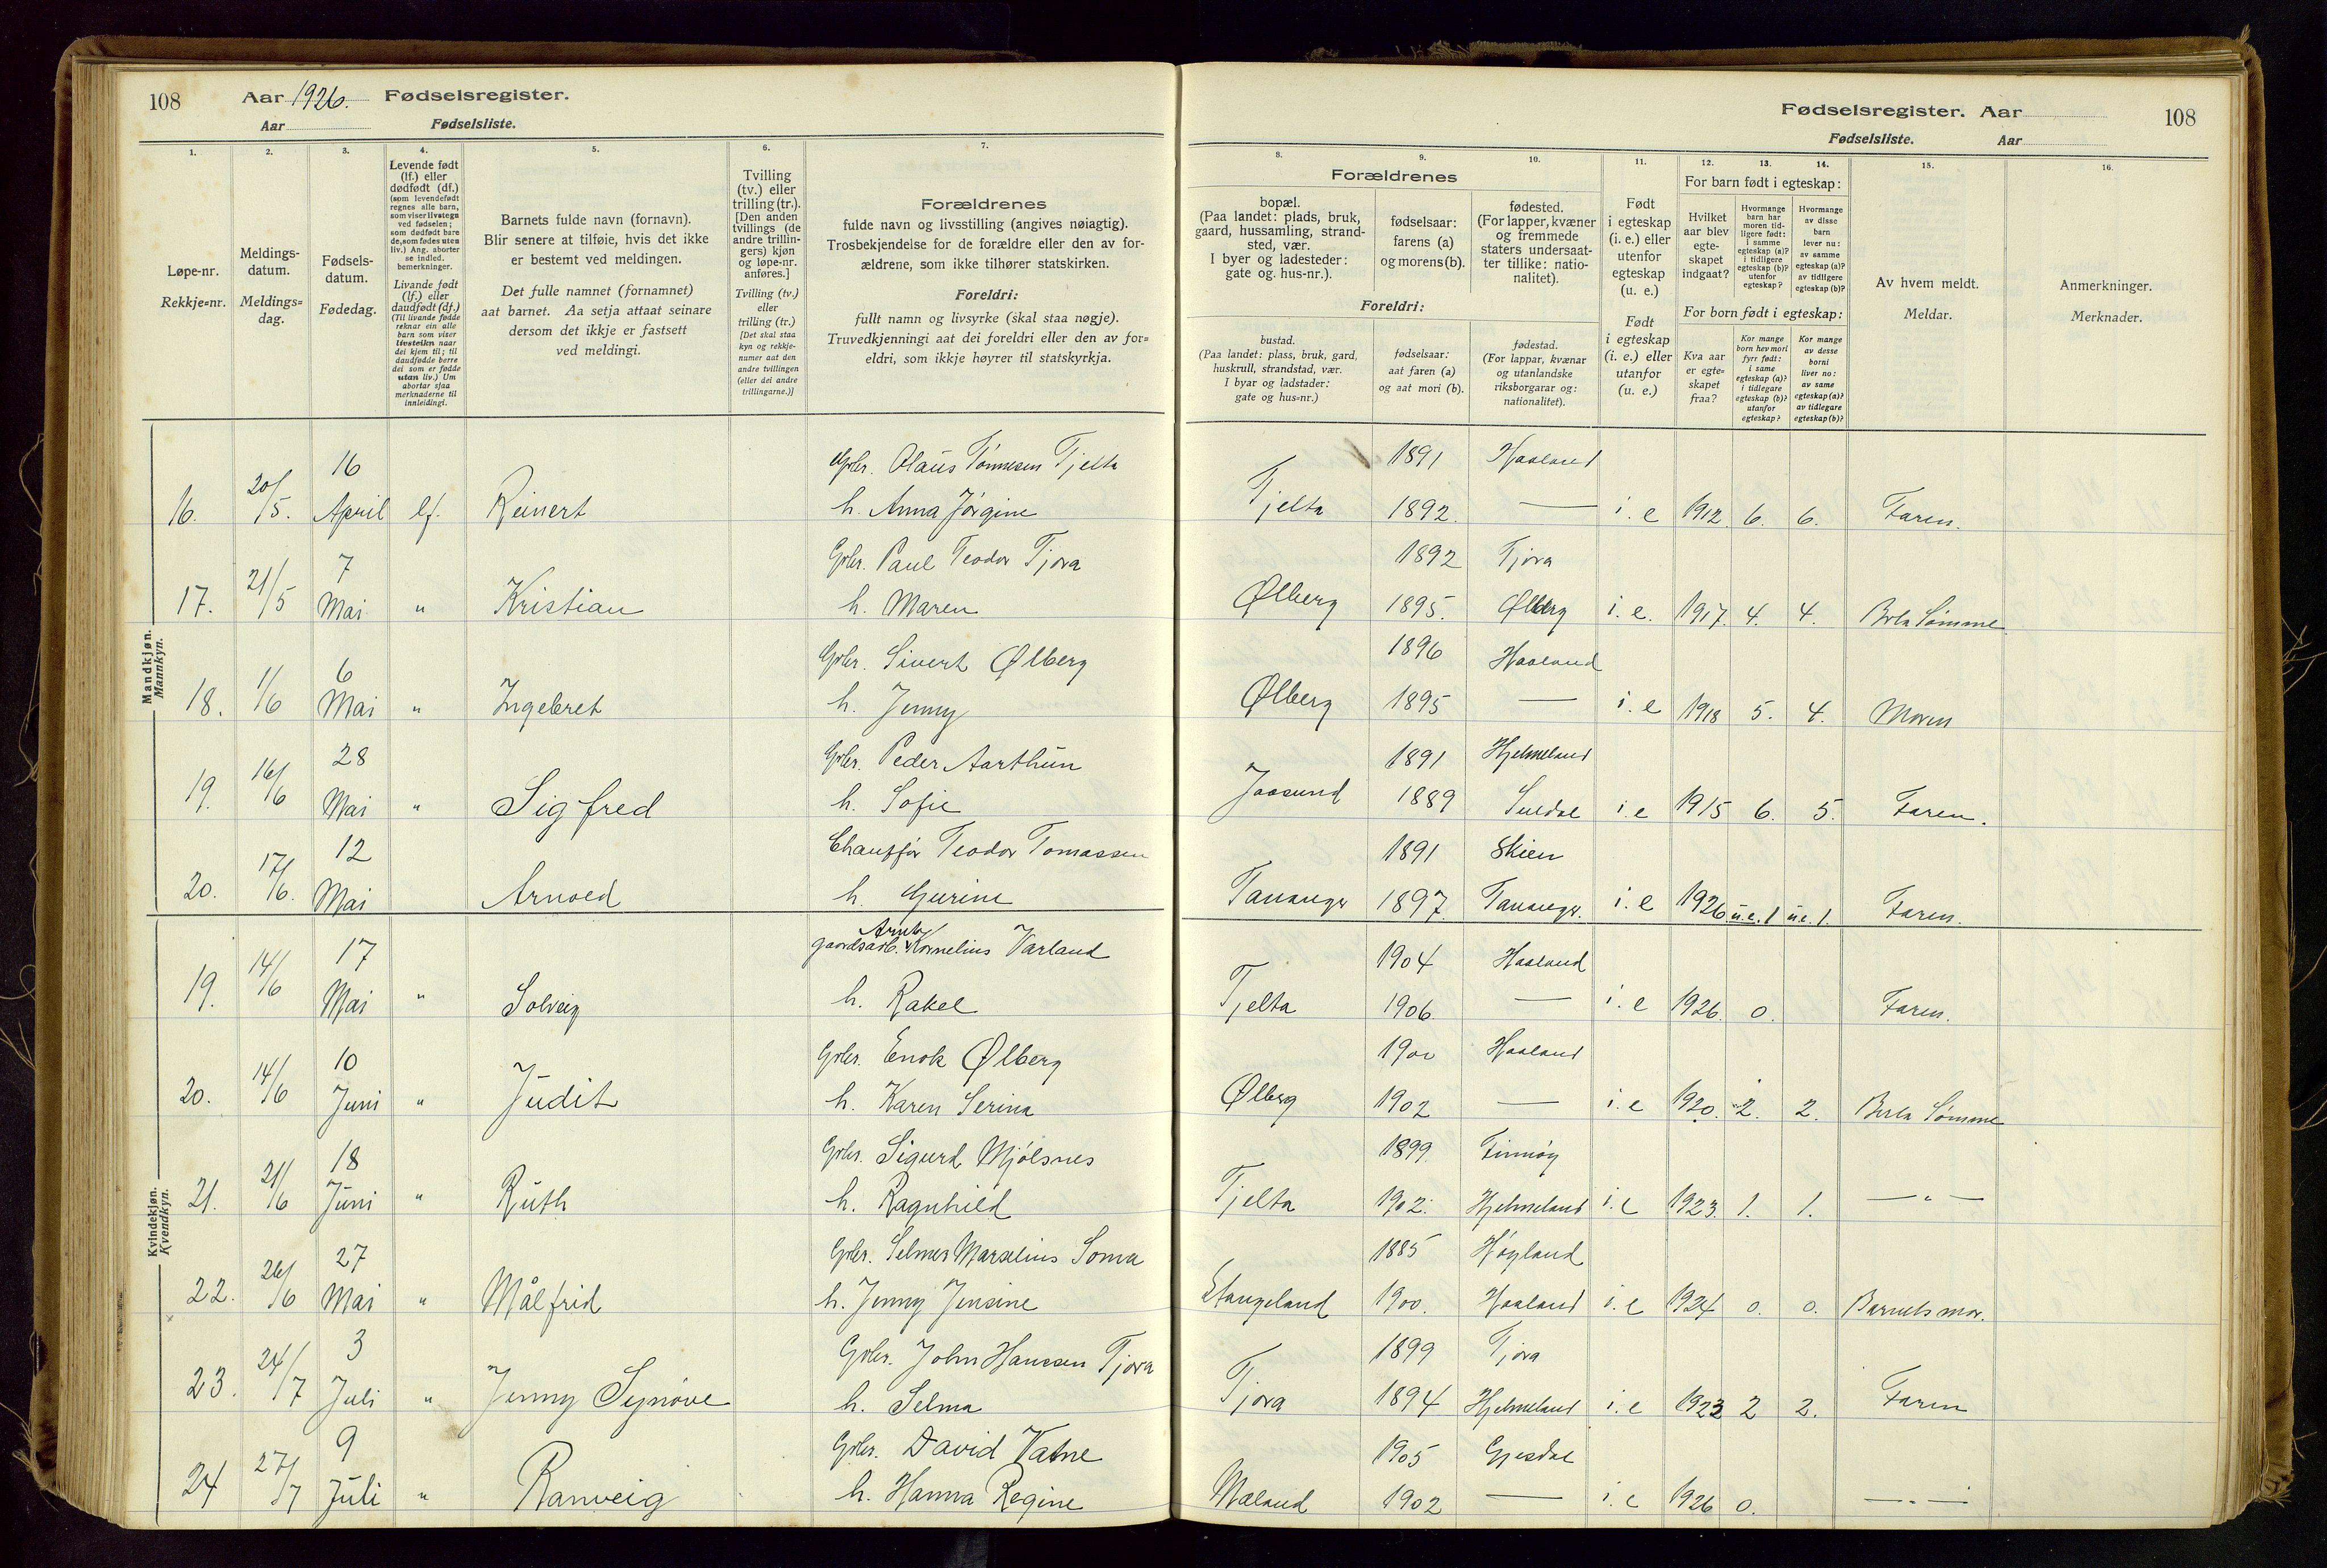 108 Aar 1926. Fødselsregister.
Aar Fødselsliste.
Fødselsregister. Aar 108
Fødselsliste. Aar
1. 2. 3. 4. 5. 6. 7.
Løpe-nr.
Rekkje=nr.
Meldings-
datum.
Meldings=
dag.
Fødsels-
datum.
Fødedag.
Levende født
(lf.) eller
dødfødt (df.)
(som levendefødt
regnes alle barn,
som viser livstegn
ved fødselen;
som dødfødt bare
de, som fødes uten
liv.) Ang. aborter
se indled.
bemerkninger.
Livande født
(lf.) eller
daudfødt (df.)
(Til livande fødde
reknar ein alle
barn som viser
livsteikn naar
dei kjem til; til
daudfødde berre
dei som er fødde
utan liv.) Um
abortar sjaa
merknaderne til
innleidingi.
Barnets fulde navn (fornavn).
Blir senere at tilføie, hvis det ikke
er bestemt ved meldingen.
Det fulle namnet (fornamnet)
aat barnet. Aa setja attaat seinare
dersom det ikkje er fastsett
ved meldingi.
Tvilling
(tv.) eller
trilling (tr.).
[Den anden
tvillings (de
andre trillin-
gers) kjøn
og løpe-nr.
anføres.]
Tvilling (tv.)
eller
trilling (tr.)
[Det skal staa
kyn og rekkje-
numer aat den
andre tvillingen
(eller dei andre
trillingarne.)]
Forældrenes
fulde navn og livsstilling (angives nøiagtig).
Trosbekjendelse for de forældre eller den av for-
ældrene, som ikke tilhører statskirken.
Foreldri:
fullt namn og livsyrke (skal staa nøgje).
Truvedkjenningi aat dei foreldri eller den av for=
eldri, som ikkje høyrer til statskyrkja.
8. 9. 10. 11. 12. 13. 14. 15. 16.
Forældrenes
bopæl.
(Paa landet: plads, bruk,
gaard, hussamling, strand-
sted, vær.
I byer og ladesteder:
gate og hus-nr.).
fødselsaar:
farens (a)
og morens (b).
fødested.
(For lapper, kvæner
og fremmede
staters undersaat-
ter tillike: natio-
nalitet).
Foreldri:
bustad.
(Paa landet: plass, bruk, gard,
huskrull, strandstad, vær.
I byar og ladstader:
gate og hus=nr.)
fødselsaar:
aat faren (a)
og aat mori (b).
fødestad.
(For lappar, kvænar
og utanlandske
riksborgarar og:
nationalitet).
Født
i egteskap
(i. e.) eller
utenfor
egteskap
(u. e.)
Født
i egteskap
(i. e.) eller
utanfor
(u. e.)
For barn født i egteskap:
Hvilket
aar blev
egte-
skapet
indgaat?
Hvormange
barn har
moren tid-
ligere født:
i samme
egteskap (a)?
i tidligere
egteskap (b)?
utenfor
egteskap?
Hvormange
av disse
barn
lever nu:
av samme
egteskap (a)?
av tidligere
egteskap (b)?
For born født i egteskap:
Kva aar
er egte=
skapet
fraa?
Kor mange
born hev mori
fyrr født:
i same
egteskap (a)?
i tidlegare
egteskap (b)?
utanfor
egteskap?
Kor mange
av desse
borni
liver no:
av same
egteskap (a)?
av tidlegare
egteskap (b)?
Av hvem meldt.
Meldar.
Anmerkninger.
Merknader.
Mandkjøn.
Mannkyn.
16. 20/5. 16 April lf. Reinert Gbr. Olaus Tønnesen Tjelta h. Anna Jørgine Tjelta 1891 Haaland 1892. — i. e 1912. 6. 6. Faren.
17. 21/5 7 Mai " Kristian Gbr. Paul Teodor Tjora h. Maren Ølberg 1892 Tjora 1895. Ølberg i. e. 1917. 4. 4. Berta Sømme
18. 1/6 6 Mai " Ingebret Gbr. Sivert Ølberg h. Jenny Ølberg 1896 Haaland 1895 — i. e 1918 5. 4. Moren
19. 16/6 28 Mai " Sigfred Gbr. Peder Aarthun h. Sofie Jaasund 1891 Hjelmeland 1889 Suldal i. e 1915 6. 5. Faren.
20. 17/6. 12 Mai Arnold Chauffør Teodor Tomassen h. Gurine Tananger 1891 Skien 1897. Tananger. i. e 1926 u.e. 1 u.e. 1. Faren.
Kvindekjøn.
Kvendkyn.
19. 14/6 17 Mai " Solveig gaardsarb. Kornelius Varland h. Rakel Tjelta 1904 Haaland 1906 — i. e 1926. 0. Faren.
20. 14/6 10 Juni " Judit Gbr. Enok Ølberg h. Karen Serina Ølberg 1900 Haaland 1902 — i. e 1920. 2. 2. Berta Sømme
21. 21/6 18 Juni " Ruth Gbr. Sigurd Mjølsnes h. Ragnhild Tjelta 1899. Finnøy 1902. Hjelmeland i. e 1923. 1. 1. — " —
22. 26/6 27 Mai " Målfrid Gbr. Selmer Marselius Soma h. Jenny Jensine Stangeland 1885 Høyland 1900. Haaland i. e 1924 0. 0. Barnets mor.
23. 24/7 3 Juli " Jenny Synøve Gbr. John Hanssen Tjora h. Selma Tjora 1899 Tjora 1894 Hjelmeland i. e 1923 2 2. Faren
24 27/7 9 Juli " Ranveig Gbr. David Vatne h. Hanna Regine Mæland 1905 Gjesdal 1902 — i. e 1926 0. — " —